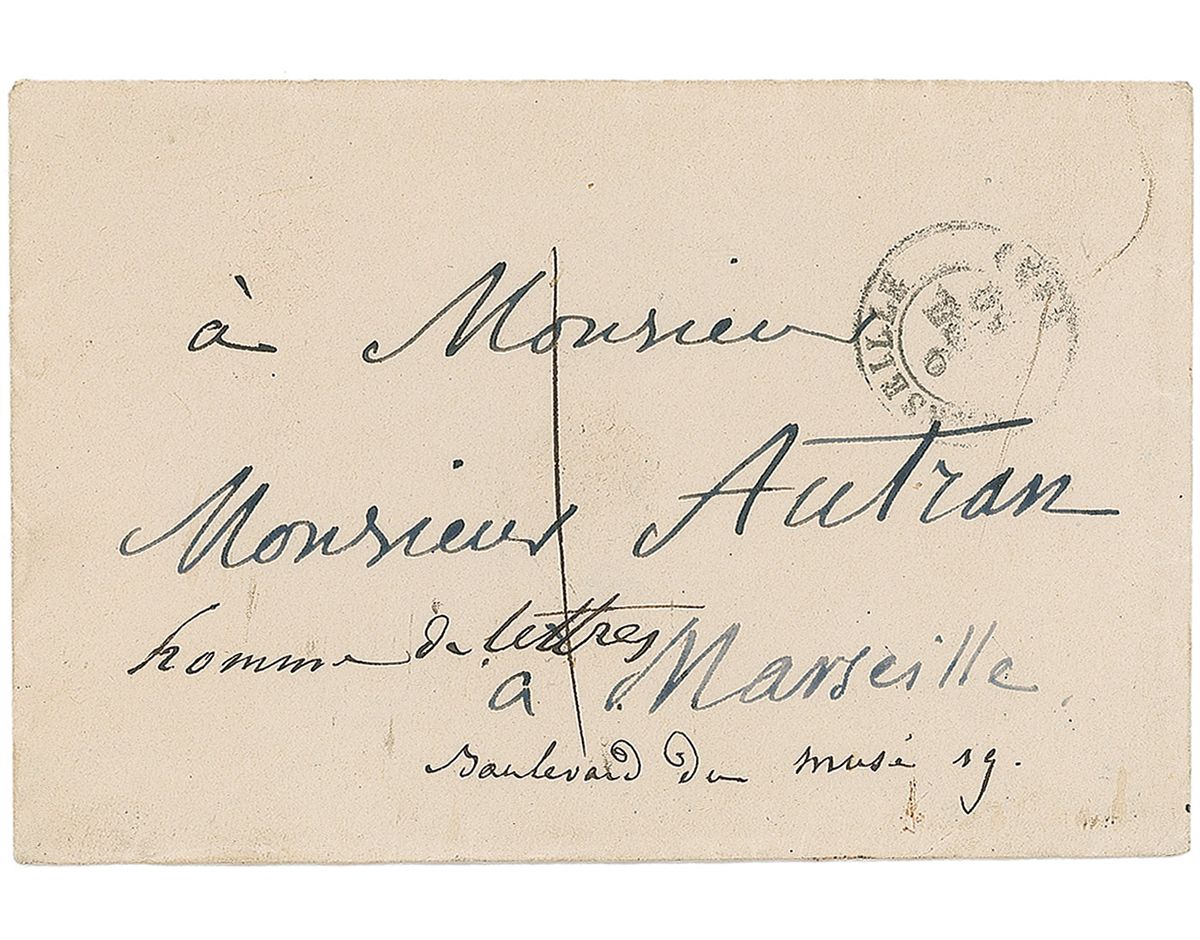 à Monsieur
Monsieur Autran
homme de lettres
à Marseille
Boulevard du musé 19.
MARSEILLE